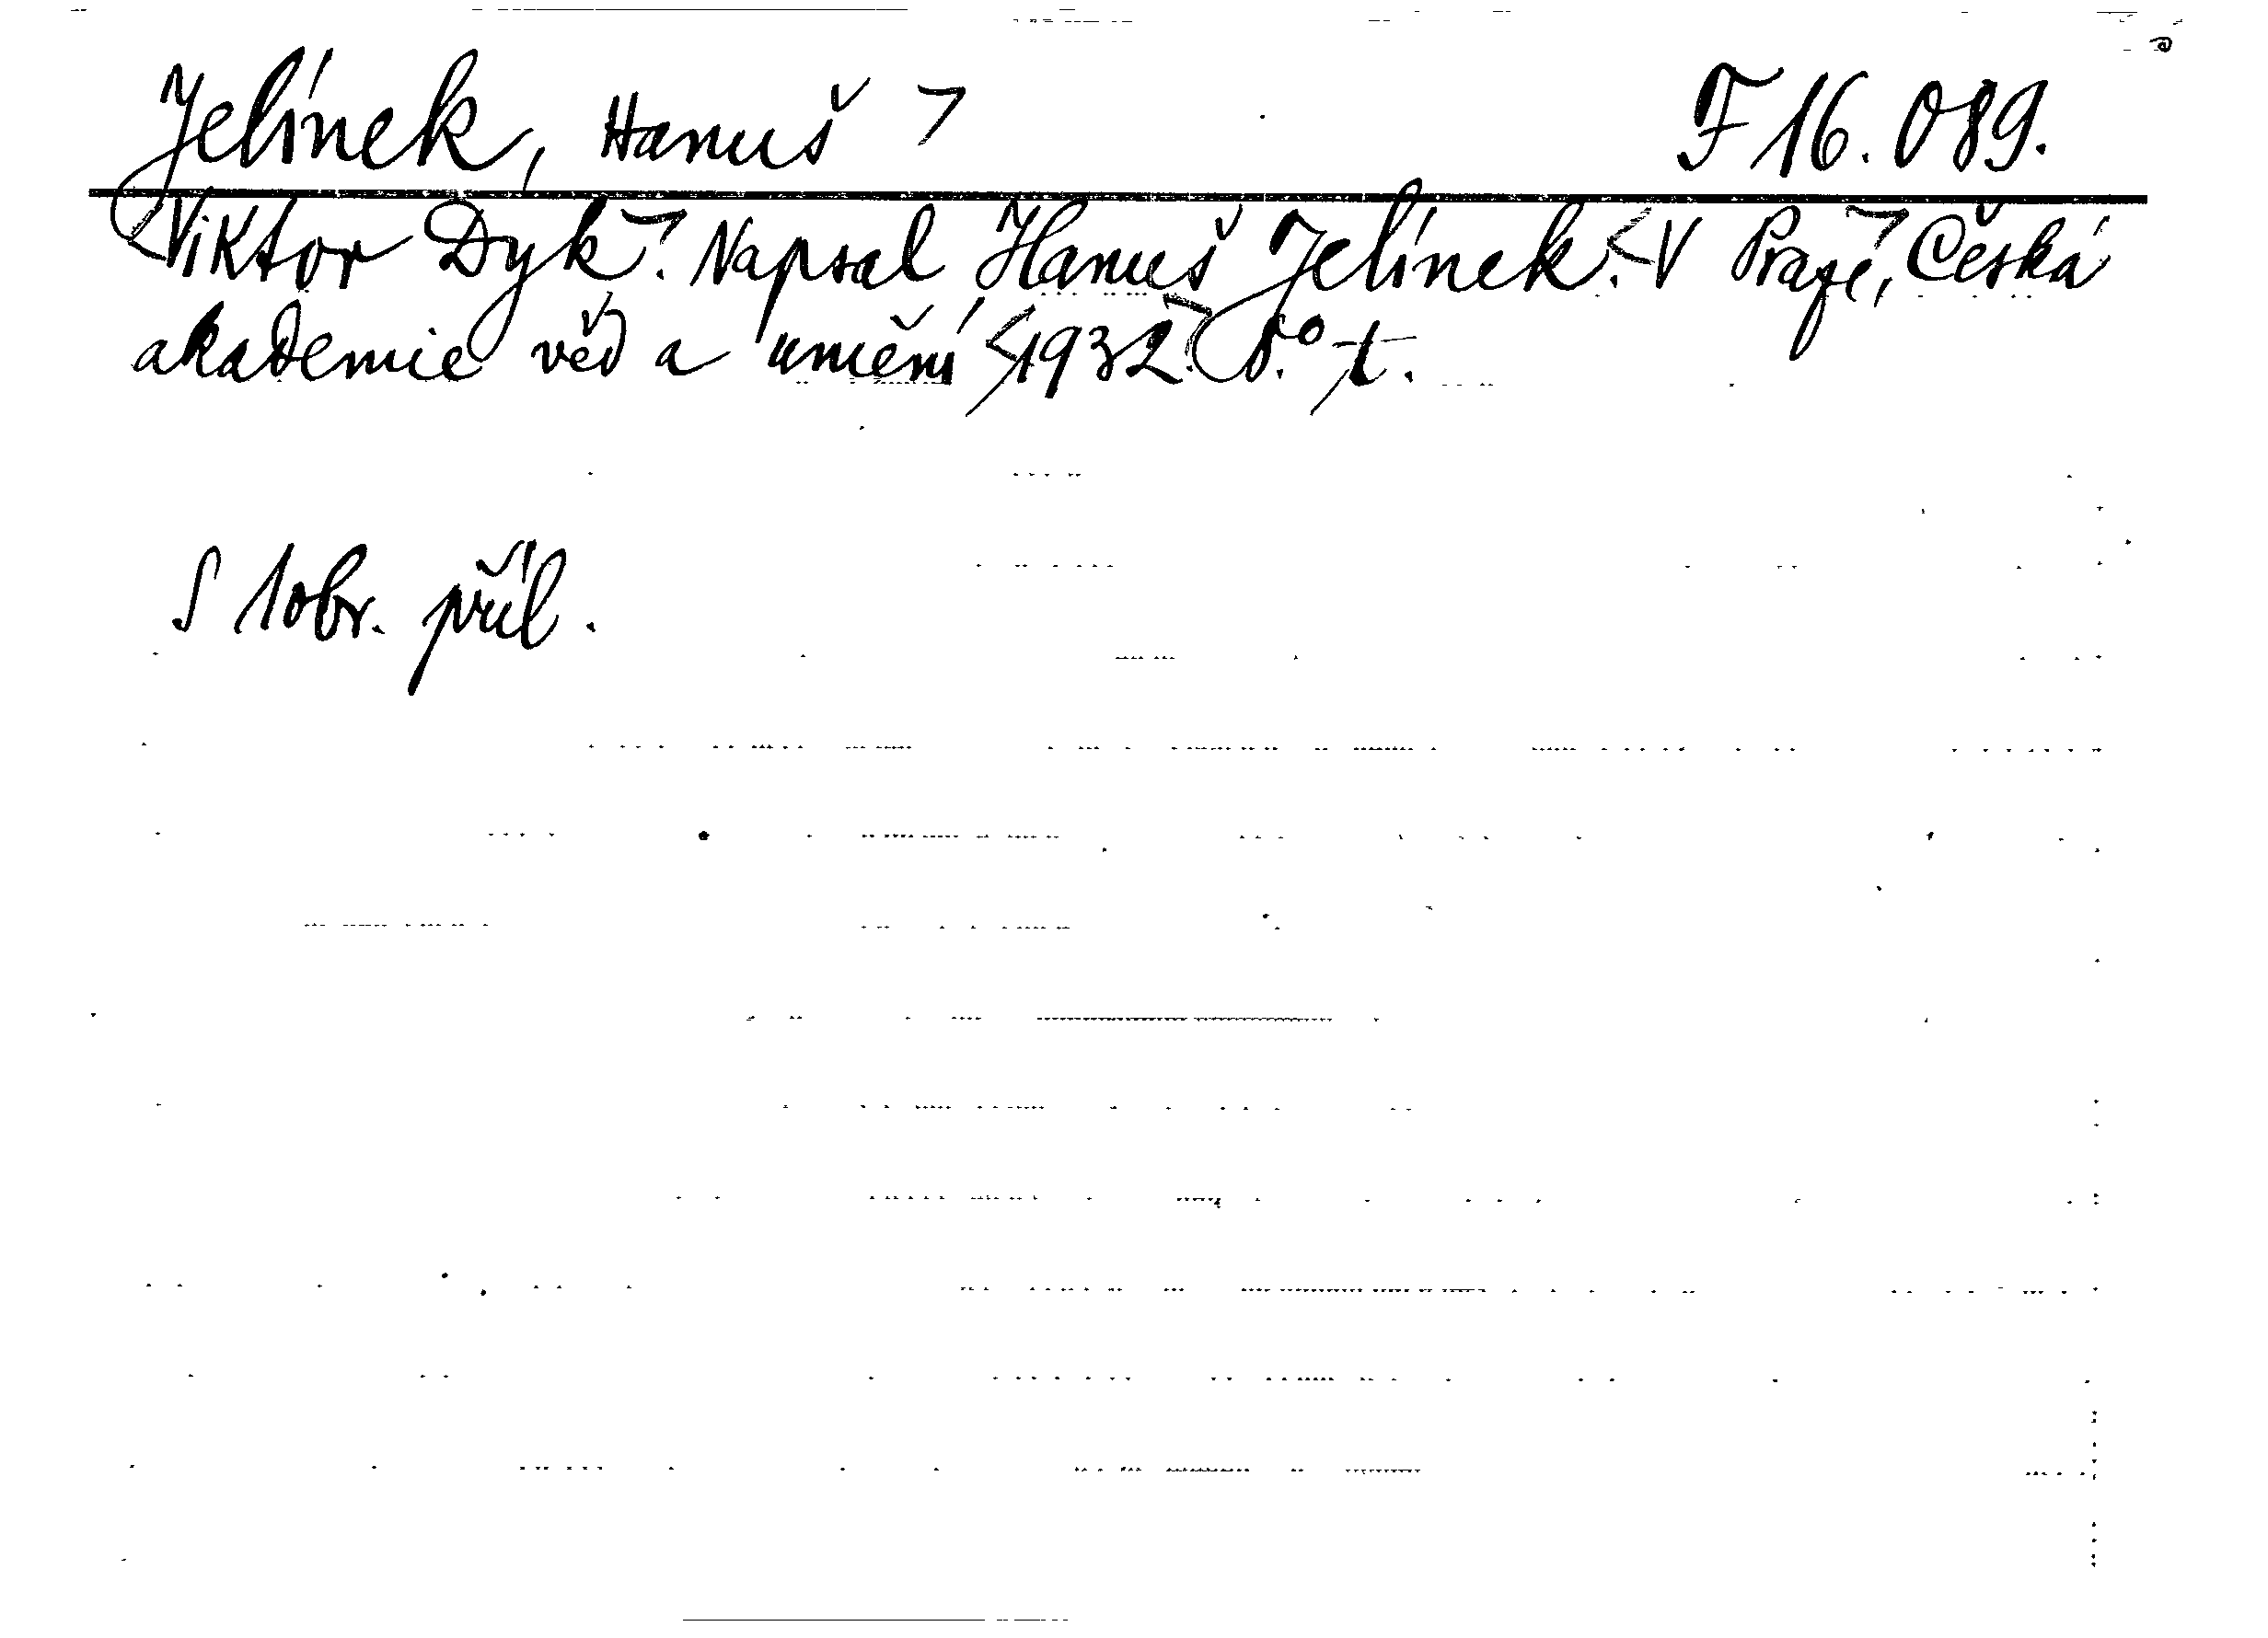 Jelínek, Hanuš F 16.089.
Viktor Dyk. Napsal Hanuš Jelínek. V Praze, Česká
akademie věd a umění 1932. 8.° t.
S 1 obr. příl.